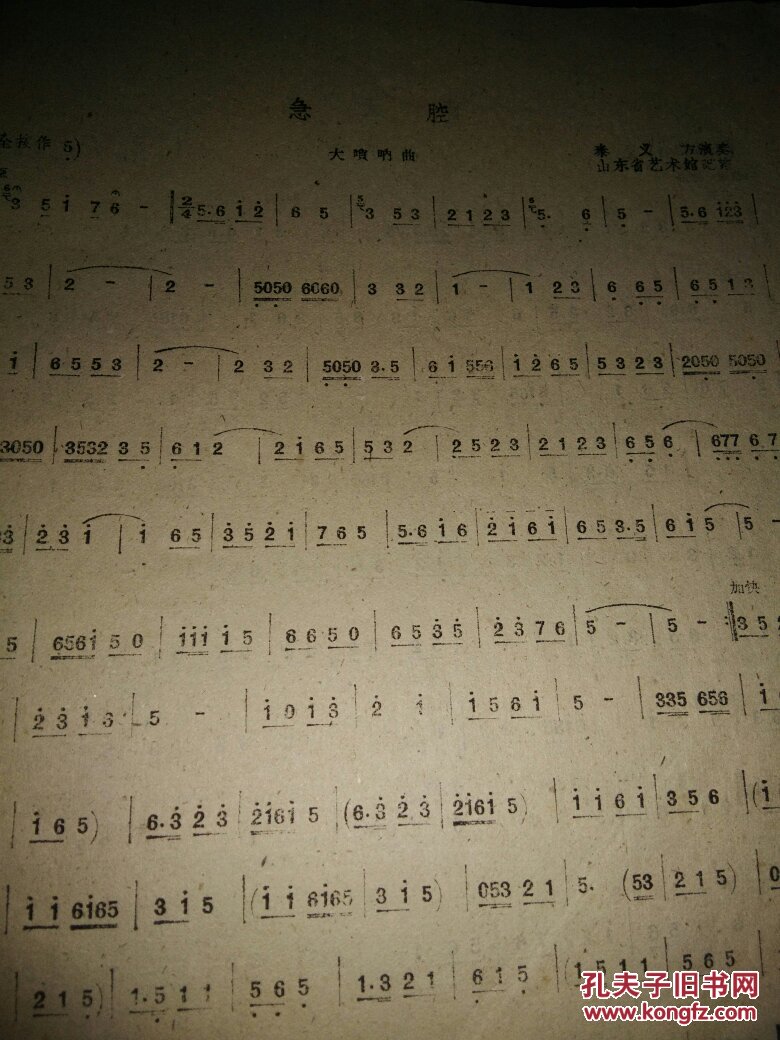 急 腔
作 5)
大唢呐曲
秦 义 方演奏
山东省艺术馆记
3 5 i 7 6 - | 2/4 5·6 i 2 | 6 5 | 3 5 3 | 2 1 2 3 | 5· 6 | 5 - | 5·6 i23 |
5 3 | 2 - | 2 - | 5050 6060 | 3 3 2 | 1 - | 1 2 3 | 6 6 5 | 6 5 1 3 |
i | 6 5 5 3 | 2 - | 2 3 2 | 5050 3·5 | 6 i 556 | i 2 6 5 | 5 3 2 3 | 2050 5050 |
3050 | 3532 3 5 | 6 1 2 | 2 i 6 5 | 5 3 2 | 2 5 2 3 | 2 1 2 3 | 6 5 6 | 677 6 7
3 | 2 3 i | i 6 5 | 3 5 2 i | 7 6 5 | 5·6 i 6 | 2 i 6 i | 6 5 3·5 | 6 i 5 | 5 -
加快
5 | 656i 5 0 | iii i 5 | 6 6 5 0 | 6 5 3 5 | 2 3 7 6 | 5 - | 5 - :| 3 5 2
| 2 3 i 6 | 5 - | i 0 i 3 | 2 i | i 5 6 i | 5 - | 335 656 | i
| i 6 5) | 6·3 2 3 | 2i6i 5 | (6·3 2 3 | 2i6i 5) | i i 6 i | 3 5 6 | (i
| i i 6i65 | 3 i 5 | (i i 6i65 | 3 i 5) | 053 2 1 | 5· (53 | 2 1 5) | 0
| 2 1 5) | 1·5 1 1 | 5 6 5 | 1·3 2 1 | 6 1 5 | (1 5 1 1 | 5 6 5 |
孔夫子旧书网
www.kongfz.com